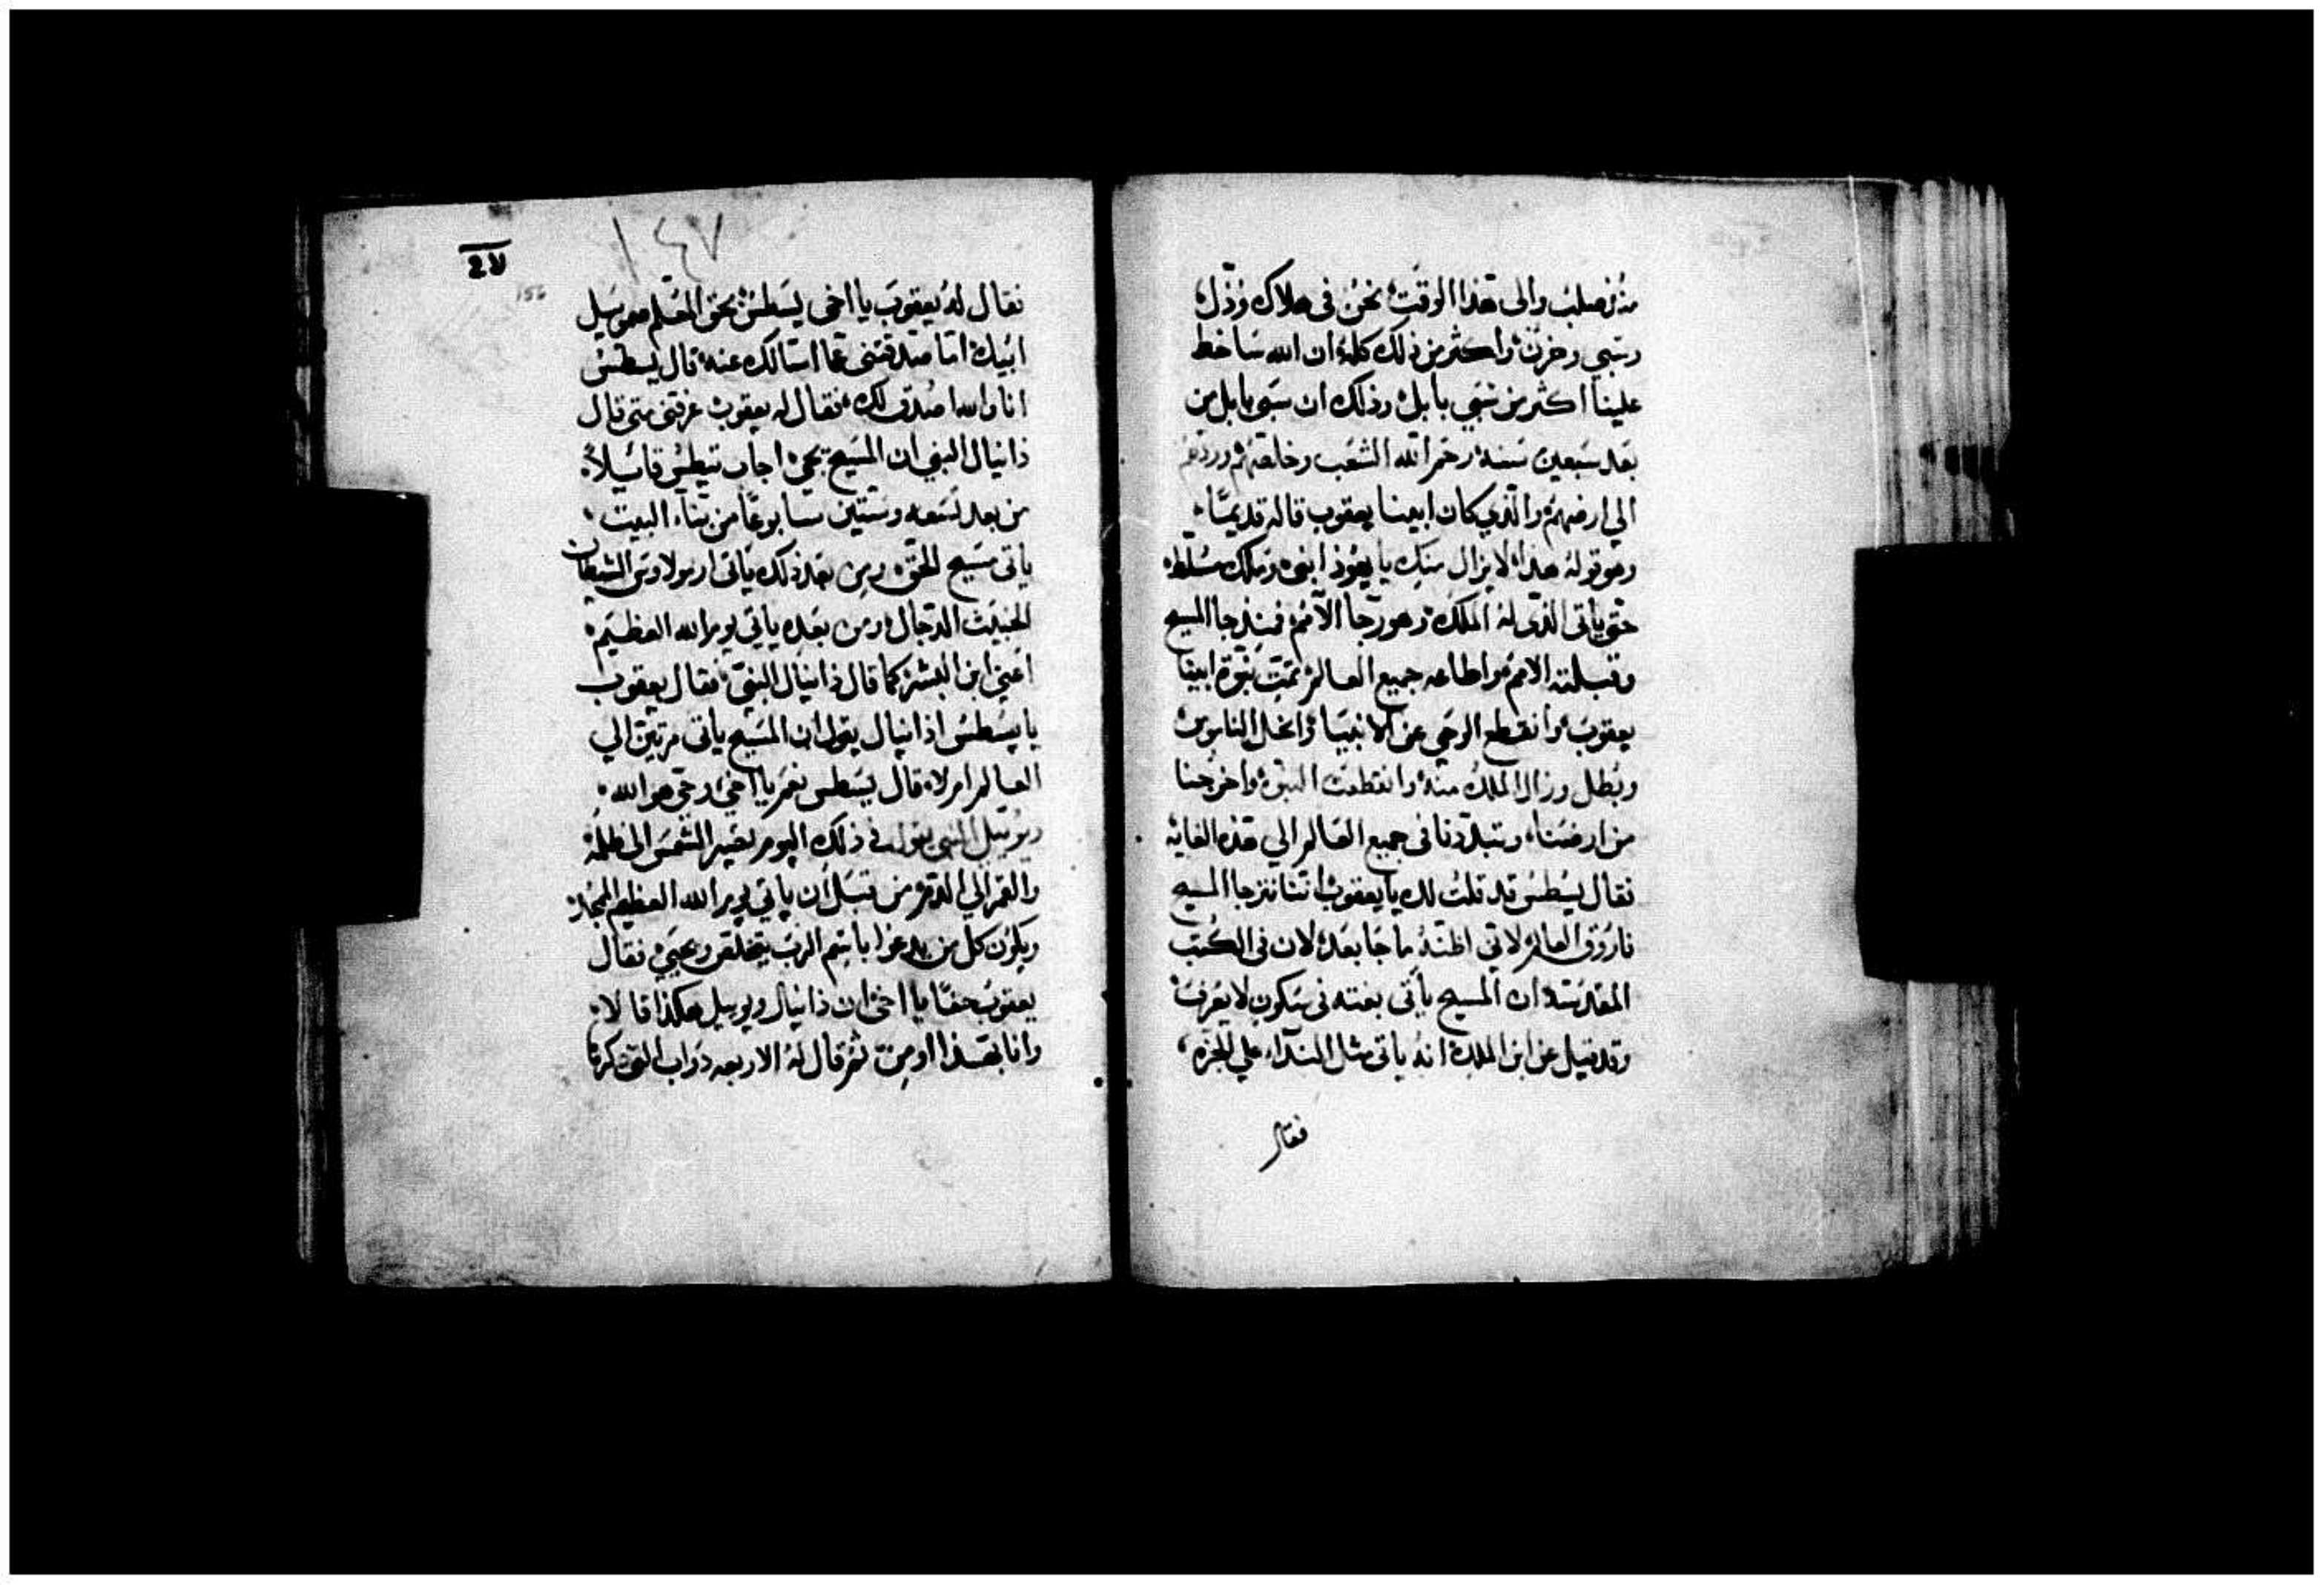 منذ صلب والى هذا الوقت نحن في هلاك وذل
وسبي وحزن واكثر من ذلك كله ان الله ساخط
علينا اكثر من سبي بابل وذلك ان سبي بابل من
بعد سبعين سنه رحم الله الشعب وخلصهم وردهم
الي ارضهم والذي كان ابينا يعقوب قاله قديما
وهو قوله هذا لا يزال منك يا يهوذا ابني وملك مسلط
حتى ياتى الذى له الملك وهو رجا الامم فمنذ جا المسيح
وقبلته الامم واطاعه جميع العالم تمت نبوة ابينا
يعقوب وانقطع الوحي عن الانبيا وانحل الناموس
وبطل وزال الملك منه وانقطعت النبوه واخرجنا
من ارضنا وتبددنا فى جميع العالم الي هذه الغايه
فقال يسطس قد قلت لك يا يعقوب اننا ننرجا المسيح
فاروق العالم لاني اظنه ما جا بعد لان فى الكتب
المقدسه ان المسيح ياتى بغته فى سكون لا يعرف
وقد قيل عن ابن الملك انه ياتى مثل النداء علي الجزه
فقال
١٤٧
156
فقال له يعقوب يا اخى يسطس بحق المعلم صمويل
ابيك اما صدقتنى عما اسالك عنه قال يسطس
انا والله اصدق لك فقال له يعقوب عرفنى متى قال
دانيال النبي ان المسيح يجئ اجاب يسطس قائلاً
من بعد تسعه وستين سابوعًا من بناء البيت
ياتى مسيح الحق ومن بعد ذلك ياتى ارمولاوس الشيطان
الخبيث الدجال ومن بعده ياتي يوم الله العظيم
اعني ابن البشر كما قال دانيال النبي فقال يعقوب
يا يسطس اذانيال يقول ان المسيح ياتى مرتين الي
العالم ام لا قال يسطس نعم يا اخي وحي هو الله
ويوئيل النبي يقول في ذلك اليوم تصير الشمس الى ظلمة
والقمر الي الدم من قبل ان ياتي يوم الله العظيم المجد
ويكون كل من يدعوا باسم الرب يتخلص ويحيي فقال
يعقوب حقا يا اخى ان دانيال ويوييل هكذا قالا
وانا بهذا اومن ثم قال له الاربعه دواب التى ذكرها